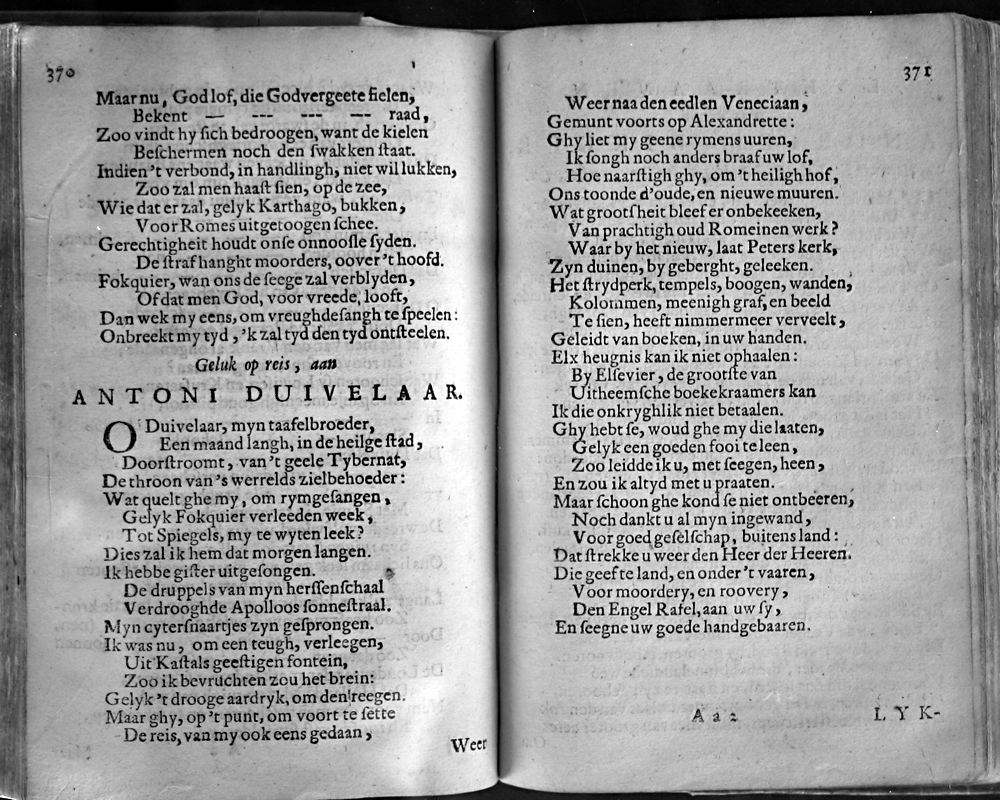 370
Maar nu, God lof, die Godvergeete fielen,
Bekent — --- --- --- raad,
Zoo vindt hy ſich bedroogen, want de kielen
Beſchermen noch den ſwakken ſtaat.
Indien 't verbond, in handlingh, niet wil lukken,
Zoo zal men haaſt ſien, op de zee,
Wie dat er zal, gelyk Karthago, bukken,
Voor Romes uitgetoogen ſchee.
Gerechtigheit houdt onſe onnooſle ſyden.
De ſtraf hanght moorders, oover 't hoofd.
Fokquier, wan ons de ſeege zal verblyden,
Of dat men God, voor vreede, looft,
Dan wek my eens, om vreughdeſangh te ſpeelen:
Onbreekt my tyd, 'k zal tyd den tyd ontſteelen.
Geluk op reis, aan
ANTONI DUIVELAAR.
O Duivelaar, myn taafelbroeder,
Een maand langh, in de heilge ſtad,
Doorſtroomt, van 't geele Tybernat,
De throon van 's werrelds zielbehoeder:
Wat quelt ghe my, om rymgeſangen,
Gelyk Fokquier verleeden week,
Tot Spiegels, my te wyten leek?
Dies zal ik hem dat morgen langen.
Ik hebbe giſter uitgeſongen.
De druppels van myn herſſenſchaal
Verdrooghde Apolloos ſonneſtraal.
Myn cyterſnaartjes zyn geſprongen.
Ik was nu, om een teugh, verleegen,
Uit Kaſtals geeſtigen fontein,
Zoo ik bevruchten zou het brein:
Gelyk 't drooge aardryk, om den reegen.
Maar ghy, op 't punt, om voort te ſette
De reis, van my ook eens gedaan,
Weer
371
Weer naa den eedlen Veneciaan,
Gemunt voorts op Alexandrette:
Ghy liet my geene rymens uuren,
Ik ſongh noch anders braaf uw lof,
Hoe naarſtigh ghy, om 't heiligh hof,
Ons toonde d'oude, en nieuwe muuren.
Wat grootſheit bleef er onbekeeken,
Van prachtigh oud Romeinen werk?
Waar by het nieuw, laat Peters kerk,
Zyn duinen, by geberght, geleeken.
Het ſtrydperk, tempels, boogen, wanden,
Kolommen, meenigh graf, en beeld
Te ſien, heeft nimmermeer verveelt,
Geleidt van boeken, in uw handen.
Elx heugnis kan ik niet ophaalen:
By Elſevier, de grootſte van
Uitheemſche boekekraamers kan
Ik die onkryghlik niet betaalen.
Ghy hebt ſe, woud ghe my die laaten,
Gelyk een goeden fooi te leen,
Zoo leidde ik u, met ſeegen, heen,
En zou ik altyd met u praaten.
Maar ſchoon ghe kond ſe niet ontbeeren,
Noch dankt u al myn ingewand,
Voor goed geſelſchap, buitens land:
Dat ſtrekke u weer den Heer der Heeren.
Die geef te land, en onder 't vaaren,
Voor moordery, en roovery,
Den Engel Rafel, aan uw ſy,
En ſeegne uw goede handgebaaren.
Aa 2
LYK-